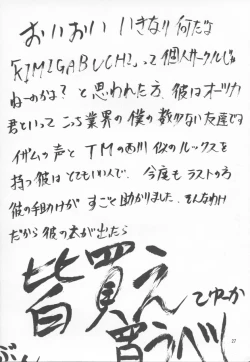 おいおい いきなり何だよ
「KIMIGABUCHI」って個人サークルじゃ
ねーのかよ? と思われた方。彼はオーツカ
君といってこっち業界の僕の数少ない友達で
イザムの声とTMの西川似のルックスを
持つ彼はとてもいい人で、今度もラストの方
彼の手助けがすごく助かりました。そんなわけ
だから彼の本が出たら
皆買え
てゆーか
買うべし
27